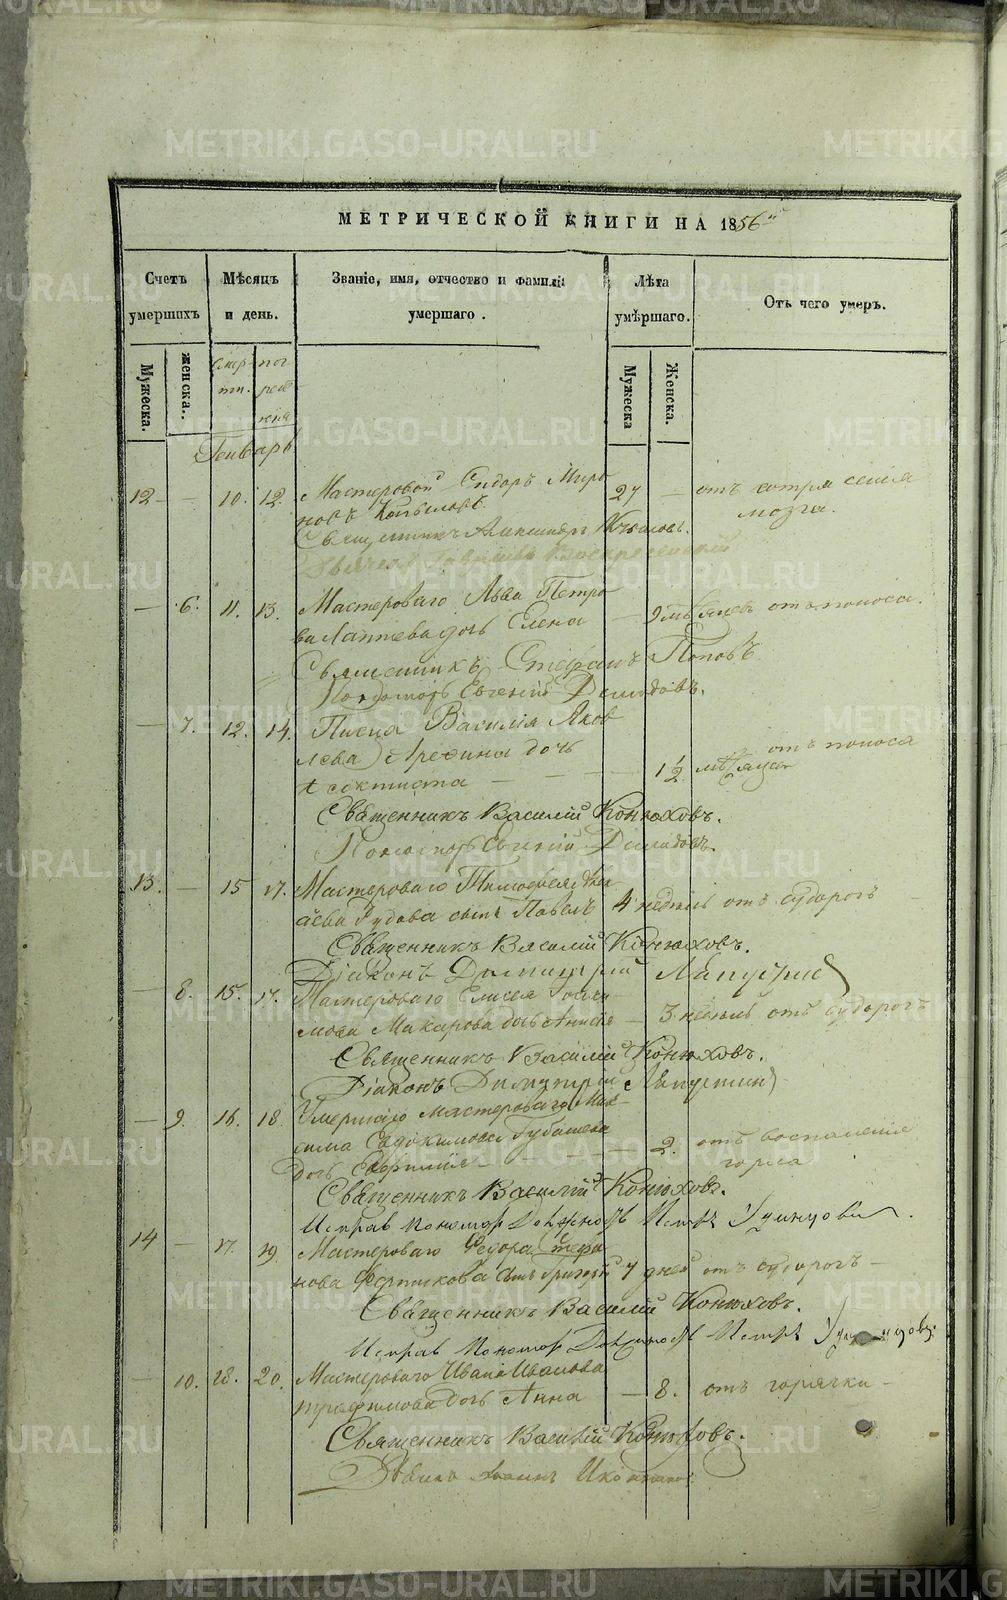 МЕТРИЧЕСКОЙ КНИГИ НА 1856й
Счетъ умершихъ
Мѣсяцъ и день.
Званіе, имя, отчество и фамилія умершаго.
Лѣта умѣршаго.
Отъ чего умеръ.
Мужеска.
женска.
смерти.
погребенія
Мужеска
Женска.
Генварь
12 — 10. 12. Мастеровой Сидоръ Миро 27 — отъ сотрясенія
новъ Копыловъ мозга.
Священникъ Александръ
— 6. 11. 13. Мастероваго Льва Петро
ва Лаптева дочь Елена — 9 мѣсяцевъ отъ поноса.
Священникъ Стефанъ Поповъ
Пономарь Евгеній Демидовъ.
— 7. 12. 14. Писца Василія Яков
лева дочь отъ поноса
Ѳеоктиста — — — — 1 1/2 мѣсяца
Священникъ Василій Конюховъ.
Пономарь Евгеній Демидовъ.
13. — 15 17. Мастероваго Тимофея Ѳед
сынъ Павелъ 4 недѣль отъ судорогъ
Священникъ Василій Конюховъ.
Діаконъ Димитрій Лапустинъ
— 8. 15. 17. Мастероваго Елисея
мова Макарова дочь Анисія — 3 недѣль отъ судорогъ
Священникъ Василій Конюховъ.
Діаконъ Димитрій Лапустинъ
— 9. 16. 18. Умершаго мастероваго Мак
сима Евдокимова — 2. отъ воспаленія
дочь Евфимія — горла
Священникъ Василій Конюховъ.
Исправ. пономар. должность Петръ Удинцовъ.
14 — 17. 19. Мастероваго Федора Стефа
нова сынъ Григорій 7 дней отъ судорогъ —
Священникъ Василій Конюховъ.
Исправ. пономар. должность Петръ Удинцовъ.
— 10. 18. 20. Мастероваго Ивана Иванова
Трефилова дочь Анна — 8. отъ горячки —
Священникъ Василій Конюховъ.
METRIKI.GASO-URAL.RU